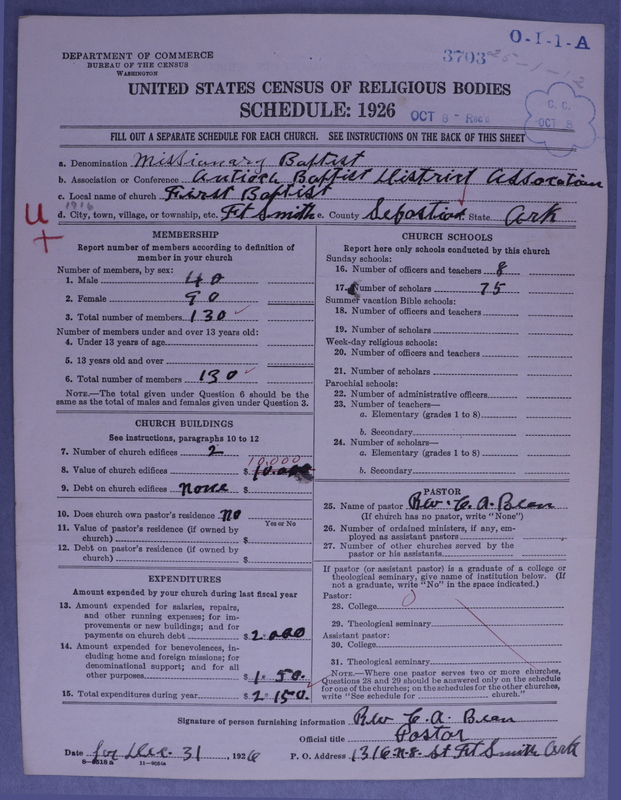 O-I-1-A
3703
DEPARTMENT OF COMMERCE
BUREAU OF THE CENSUS
WASHINGTON
UNITED STATES CENSUS OF RELIGIOUS BODIES
SCHEDULE: 1926
OCT 8 - Rec'd
C. C.
OCT 8
FILL OUT A SEPARATE SCHEDULE FOR EACH CHURCH. SEE INSTRUCTIONS ON THE BACK OF THIS SHEET
a. Denomination Missionary Baptist
b. Association or Conference Antioch Baptist District Assocation
c. Local name of church First Baptist
1916
d. City, town, village, or township, etc. Ft Smith e. County Sebastian State Ark
U
+
MEMBERSHIP
Report number of members according to definition of
member in your church
Number of members, by sex:
1. Male 40
2. Female 90
3. Total number of members 130
Number of members under and over 13 years old:
4. Under 13 years of age
5. 13 years old and over
6. Total number of members 130
NOTE.—The total given under Question 6 should be the
same as the total of males and females given under Question 3.
CHURCH BUILDINGS
See instructions, paragraphs 10 to 12
7. Number of church edifices 2
10,000
8. Value of church edifices $
9. Debt on church edifices none $
10. Does church own pastor's residence no
Yes or No
11. Value of pastor's residence (if owned by
church) $
12. Debt on pastor's residence (if owned by
church) $
EXPENDITURES
Amount expended by your church during last fiscal year
13. Amount expended for salaries, repairs,
and other running expenses; for im-
provements or new buildings; and for
payments on church debt $ 2,000
14. Amount expended for benevolences, in-
cluding home and foreign missions; for
denominational support; and for all
other purposes $ 1.50.
15. Total expenditures during year $ 2150.
CHURCH SCHOOLS
Report here only schools conducted by this church
Sunday schools:
16. Number of officers and teachers 8
17. Number of scholars 75
Summer vacation Bible schools:
18. Number of officers and teachers
19. Number of scholars
Week-day religious schools:
20. Number of officers and teachers
21. Number of scholars
Parochial schools:
22. Number of administrative officers
23. Number of teachers—
a. Elementary (grades 1 to 8)
b. Secondary
24. Number of scholars—
a. Elementary (grades 1 to 8)
b. Secondary
PASTOR
25. Name of pastor Rev. C. A. Bean
(If church has no pastor, write "None")
26. Number of ordained ministers, if any, em-
ployed as assistant pastors
27. Number of other churches served by the
pastor or his assistants
If pastor (or assistant pastor) is a graduate of a college or
theological seminary, give name of institution below. (If
not a graduate, write "No" in the space indicated.)
Pastor:
28. College 0
29. Theological seminary
Assistant pastor:
30. College
31. Theological seminary
NOTE.—Where one pastor serves two or more churches,
Questions 28 and 29 should be answered only on the schedule
for one of the churches; on the schedules for the other churches,
write "See schedule for church."
Signature of person furnishing information Rev C. A. Bean
Official title Pastor
Date for Dec. 31, 1926
P. O. Address 1316 N. 8- St Ft Smith Ark
8-5518 a 11-9051a